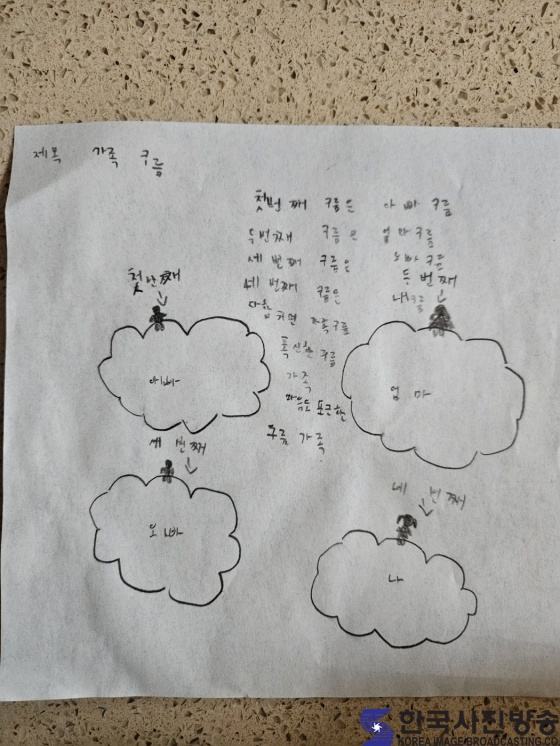 제목 가족 구름
첫번째 구름은 아빠 구름
두번째 구름은 엄마구름
세 번째 구름은 오빠 구름
네 번째 구름은 내구름
다음 가족구름
폭신한 구름
가족
마음도 포근한
구름 가족.
첫번째
아빠
두번째
엄마
세 번째
오빠
네 번째
나
한국사진방송
KOREA IMAGE BROADCASTING CO